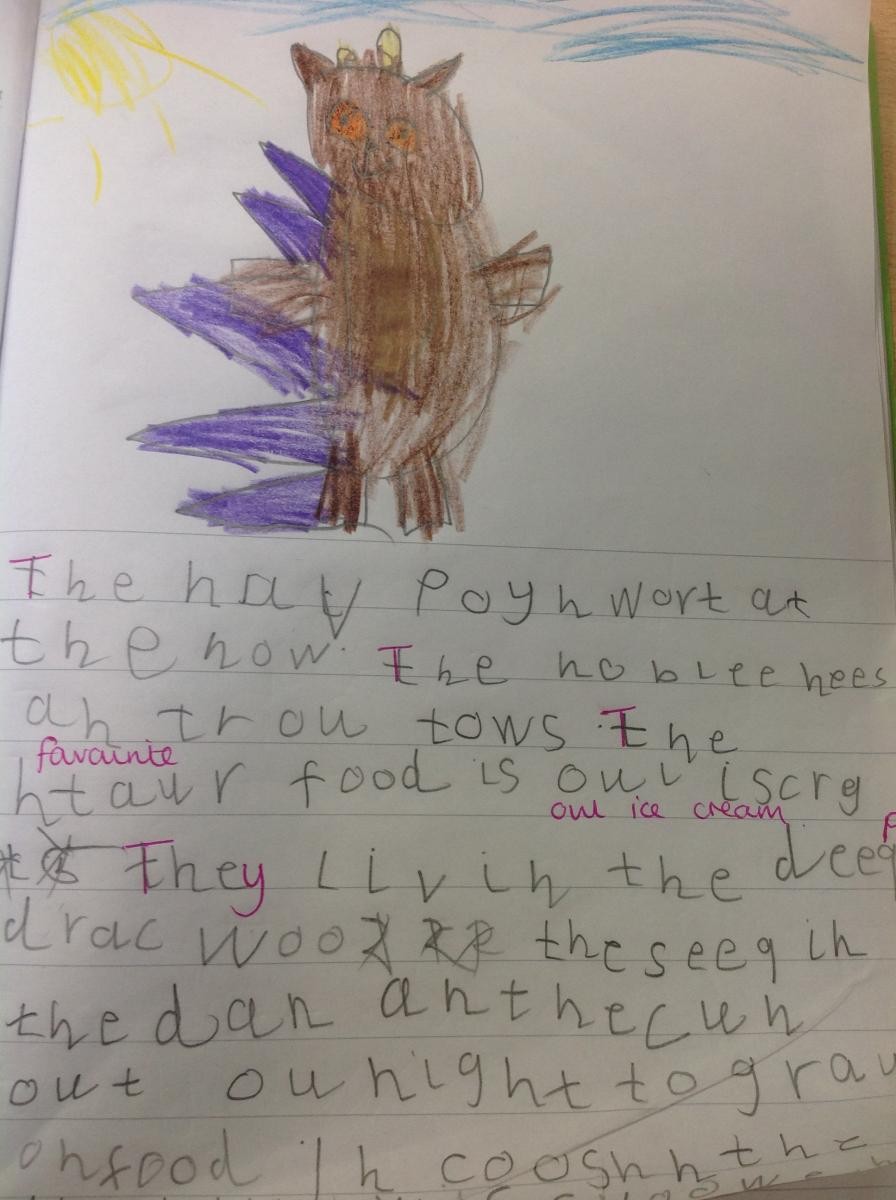 The hav Poyhwort at
the now. The nobleehees
an trou tows. The
favainte
htaur food is oul iscrg
owl ice cream
They Livin the deep
drac woo theseeq in
the dan an the cun
out ou night to grav
onfood